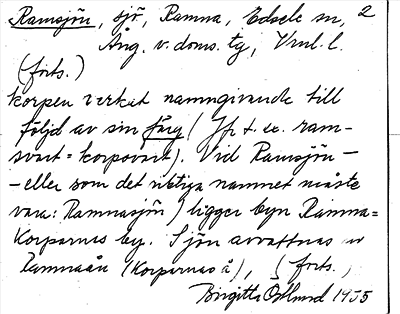 Ramsjön, sjö, Ramna, Edsele sn, 2
Ång. v. doms. tg, Vnl. l.
(forts.)
korpen verkat namngivande till
följd av sin färg (Jfr t. ex. ram-
svart = korpsvart). Vid Ramsjön –
– eller som det riktiga namnet måste
vara: Ramnasjön) ligger byn Ramna =
Korparnas by. Sjön avvattnas av
Ramnaån (Korparnas å), (forts.)
Birgitta Östlund 1955